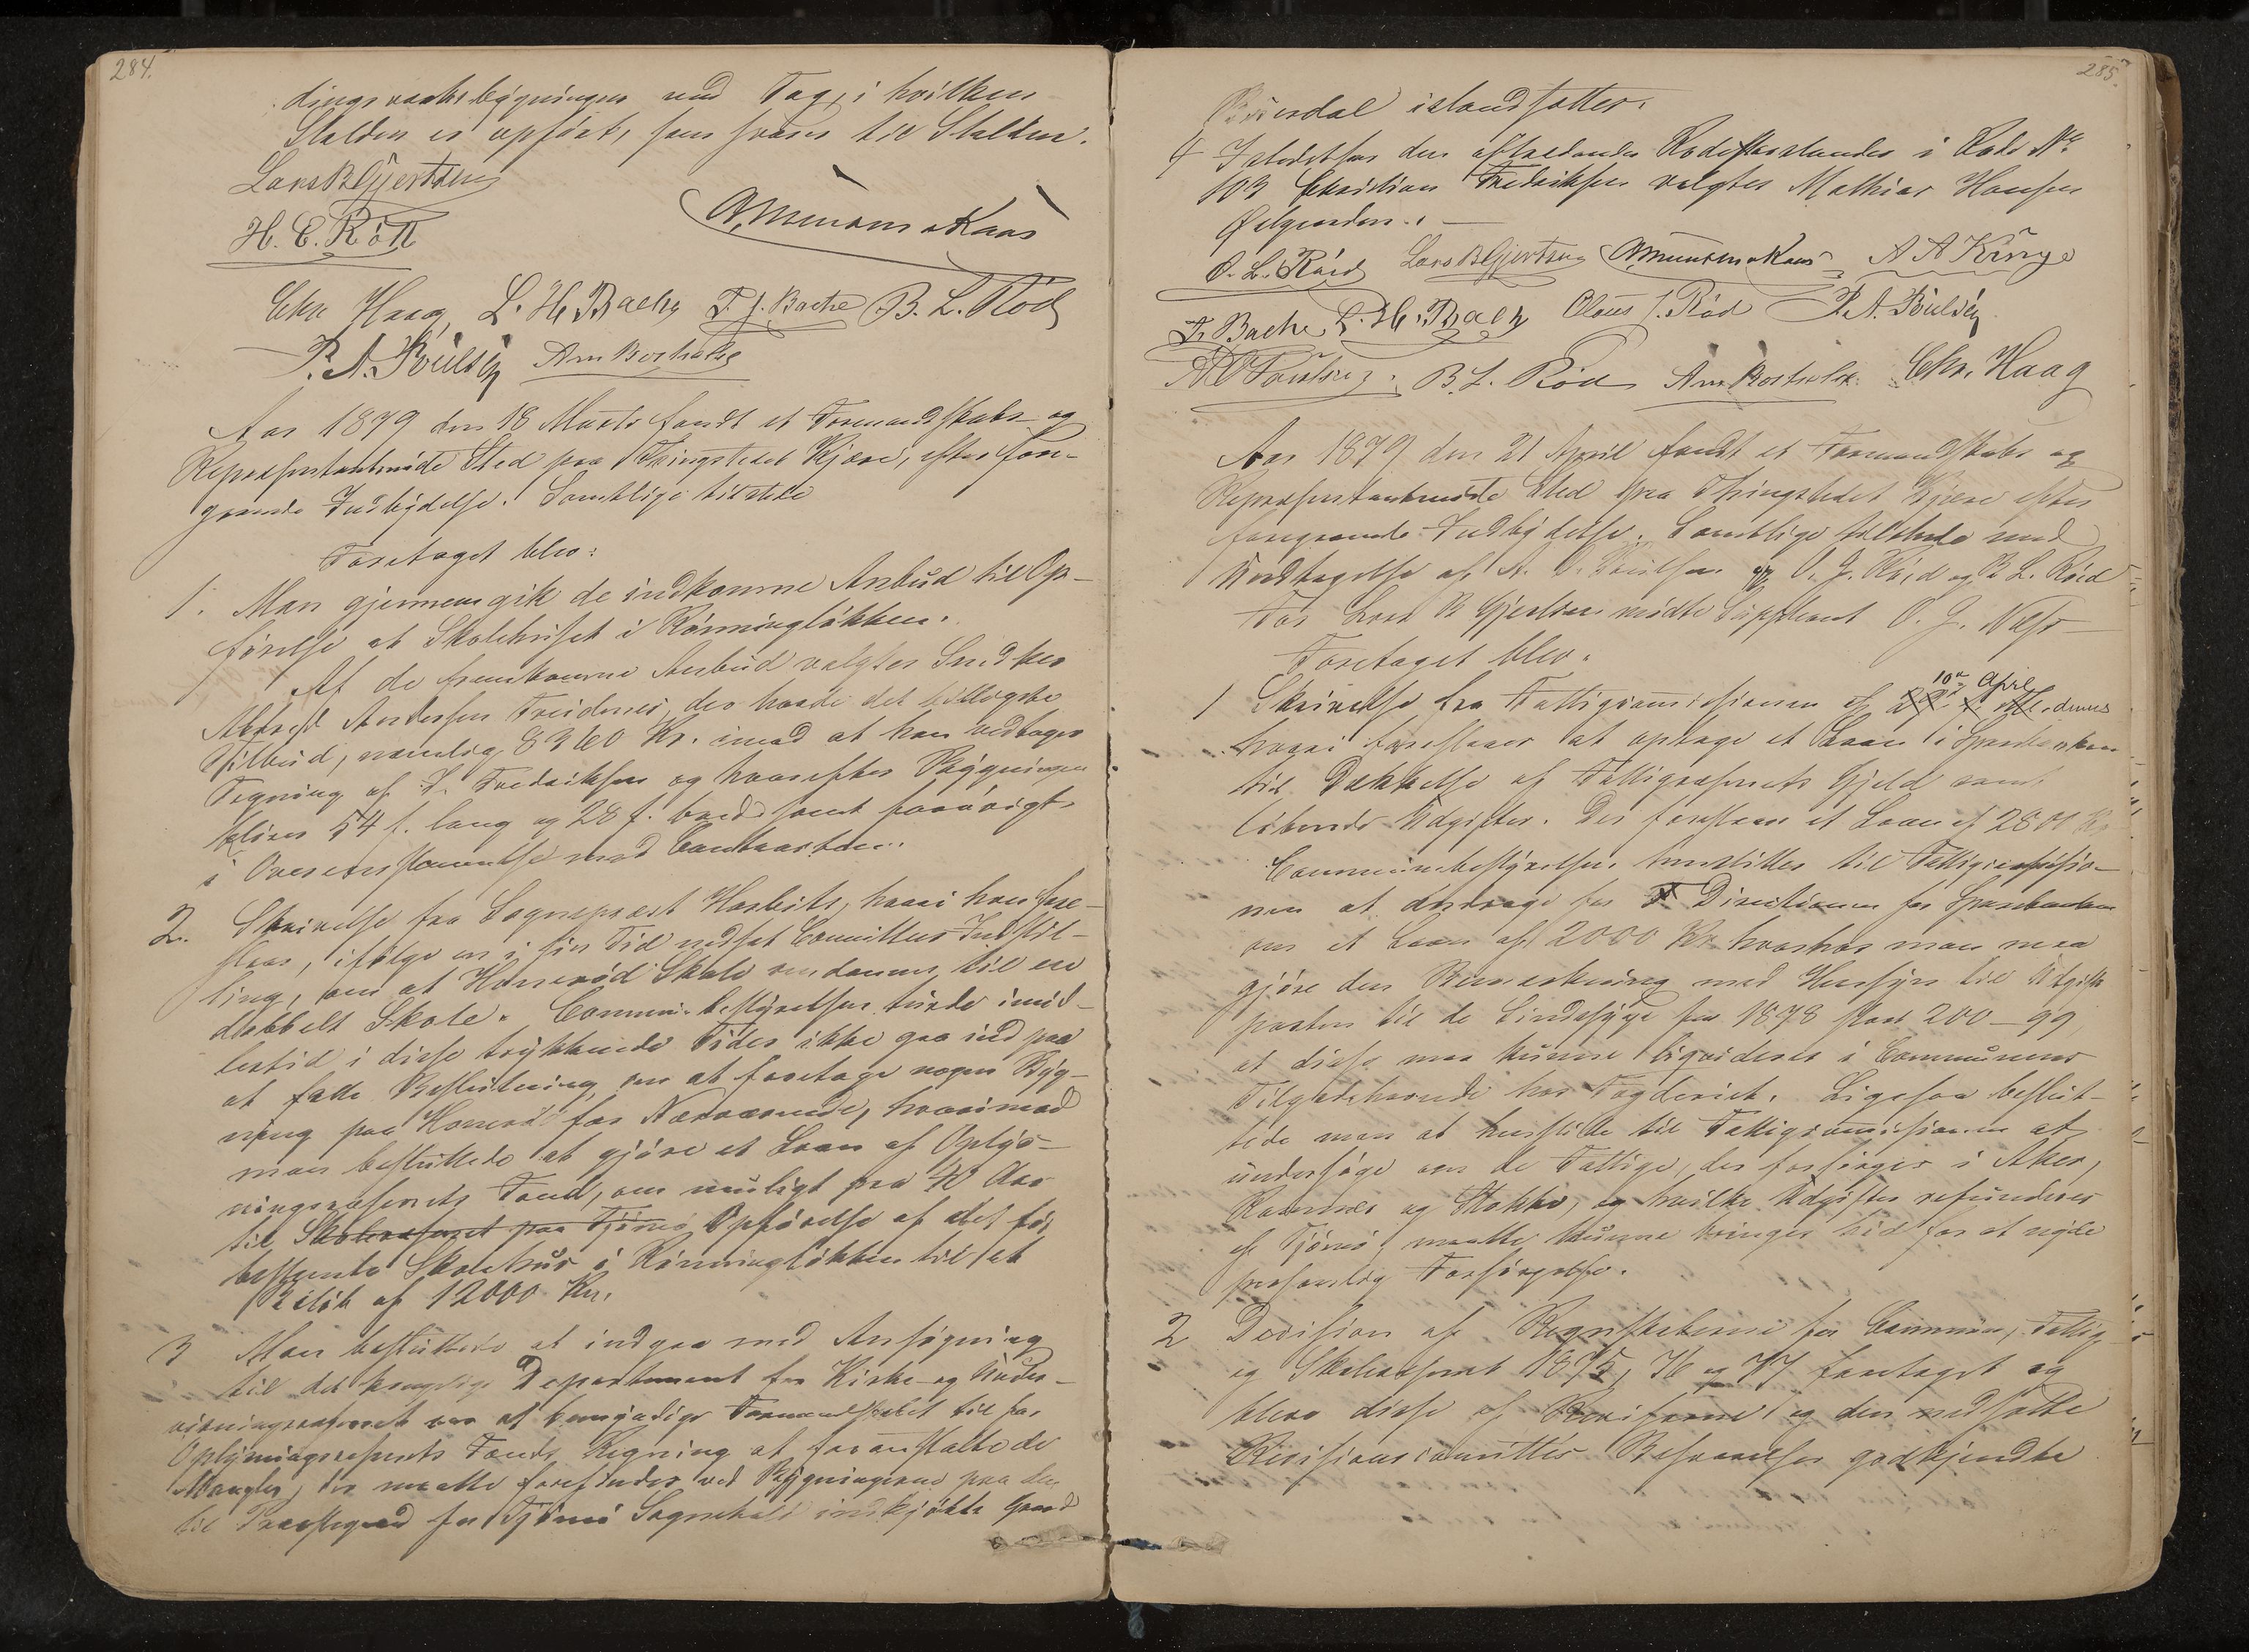 284.
dingsvaabsbygningen med Tag, i hvilken
Stalden er opført, som svarer til Stalden.
Lars B Gjertsen
H. C. Röd
Amundsen Kaas
Chr Haag, L. H. Bache F. J. Bache B. L. Röd
P. A. Poulsen
Aar 1879 den 18 Marts fandt et Formandskabs og
Repræsentantmøde Sted paa Thingstedet Kjære, efter fore-
gaaende Indbydelse. Samtlige tilstede
Foretaget blev:
1. Man gjennemgik de indkomne Anbud til Op-
førelse at Skolehuset i Rønningløkken.
Af de fremkomne Anbud valgtes Snedker
Andersen det billigste
Tilbud, nemlig 8360 Kr. imod at han vedtager
Tegning af Fredriksen og hvorefter Bygningen
bliver 54 f. lang og 28 f. bred samt forøvrigt
i Overensstemmelse med Contracten.
2. Skrivelse fra Sogneprest Horbits, hvori han fore-
slaar, ifølge en i sin Tid nedsat Committees Indstil-
ling, om at Skole omdannes til en
dobbelt Skole. Communebestyrelsen turde imid-
lertid i disse trykkende Tider ikke gaa ind paa
at fatte Beslutning, om at foretage nogen Byg-
ning paa for Nærværende, hvorimod
man besluttede at gjøre et Laan af Oplys-
ningsvæsenets Fond, om muligt paa 40 Aar
til Skolevæsenet paa Tjømø Opførelse af det før
bestemte Skolehus i Rønningløkken til et
Beløb af 12000 Kr.
3 Man besluttede at indgaa med Ansøgning
til det kongelige Departement for Kirke- og Under-
visningsvæsenet om at bemyndige Formandskabet til for
Oplysningsvæsenets Fonds Regning at foranstalte de
Mangler, der maatte forefindes ved Bygningerne paa den
til Præstegaard for Tjømø Sognekald indkjøbte Gaard
285.
istandsættes.
4 Istedetfor den aftrædende Rodeforstander i Rode No
103 Christian Fredriksen valgtes Mathias Hansen
O. L. Röed Lars B Gjertsen Amundsen Kaas A A Kruge
F. Bache L. H. Bache Olaus J. Röd P. A. Poulsen
B. L. Röd Chr. Haag
Aar 1879 den 21 April fandt et Formandskabs og
Repræsentantmøde Sted paa Thingstedet Kjære efter
foregaaende Indbydelse. Samtlige tilstede med
Undtagelse af A. O. Poulsen og O. J. Röd og B L. Röed
For Lars B Gjertsen mødte Suppleant O. J. Næss
Foretaget blev:
1 Skrivelse fra Fattigcomissionen af 10de April dennes
hvori foreslaaes at optage et Laan i Sparebanken
til Dækkelse af Fattigvæsenets Gjeld samt
løbende Udgifter. Der foreslaaes et Laan af 2800 Kr
Communebestyrelsen henstiller til Fattigcomissio-
nen at andrage for Directionen for Sparebanken
om et Laan af 2000 Kr hvorhos man maa
gjøre den Bemerkning med Hensyn til Udgifts
posten til de Sindssyge for 1878 stor 200-99
at disse maa kunne liqvideres i Communens
Tilgodehavende hos Fogderiet. Ligesaa beslut-
tede man at henstille til Fattigcomissionen at
undersøge om de Fattige, der forsørges i Aker,
Ramnes og Stokke, og hvilke Udgifter refunderes
af Tjømø, maatte kunne bringes hid for at nyde
personlig Forsørgelse.
2 Decision af Regnskaberne for Commune, Fattig
og Skolevæsenet 1875, 76 og 77 foretaget og
blev disse af Revisorerne og den nedsatte
Revisionscomittes Besvarelser godkjendte